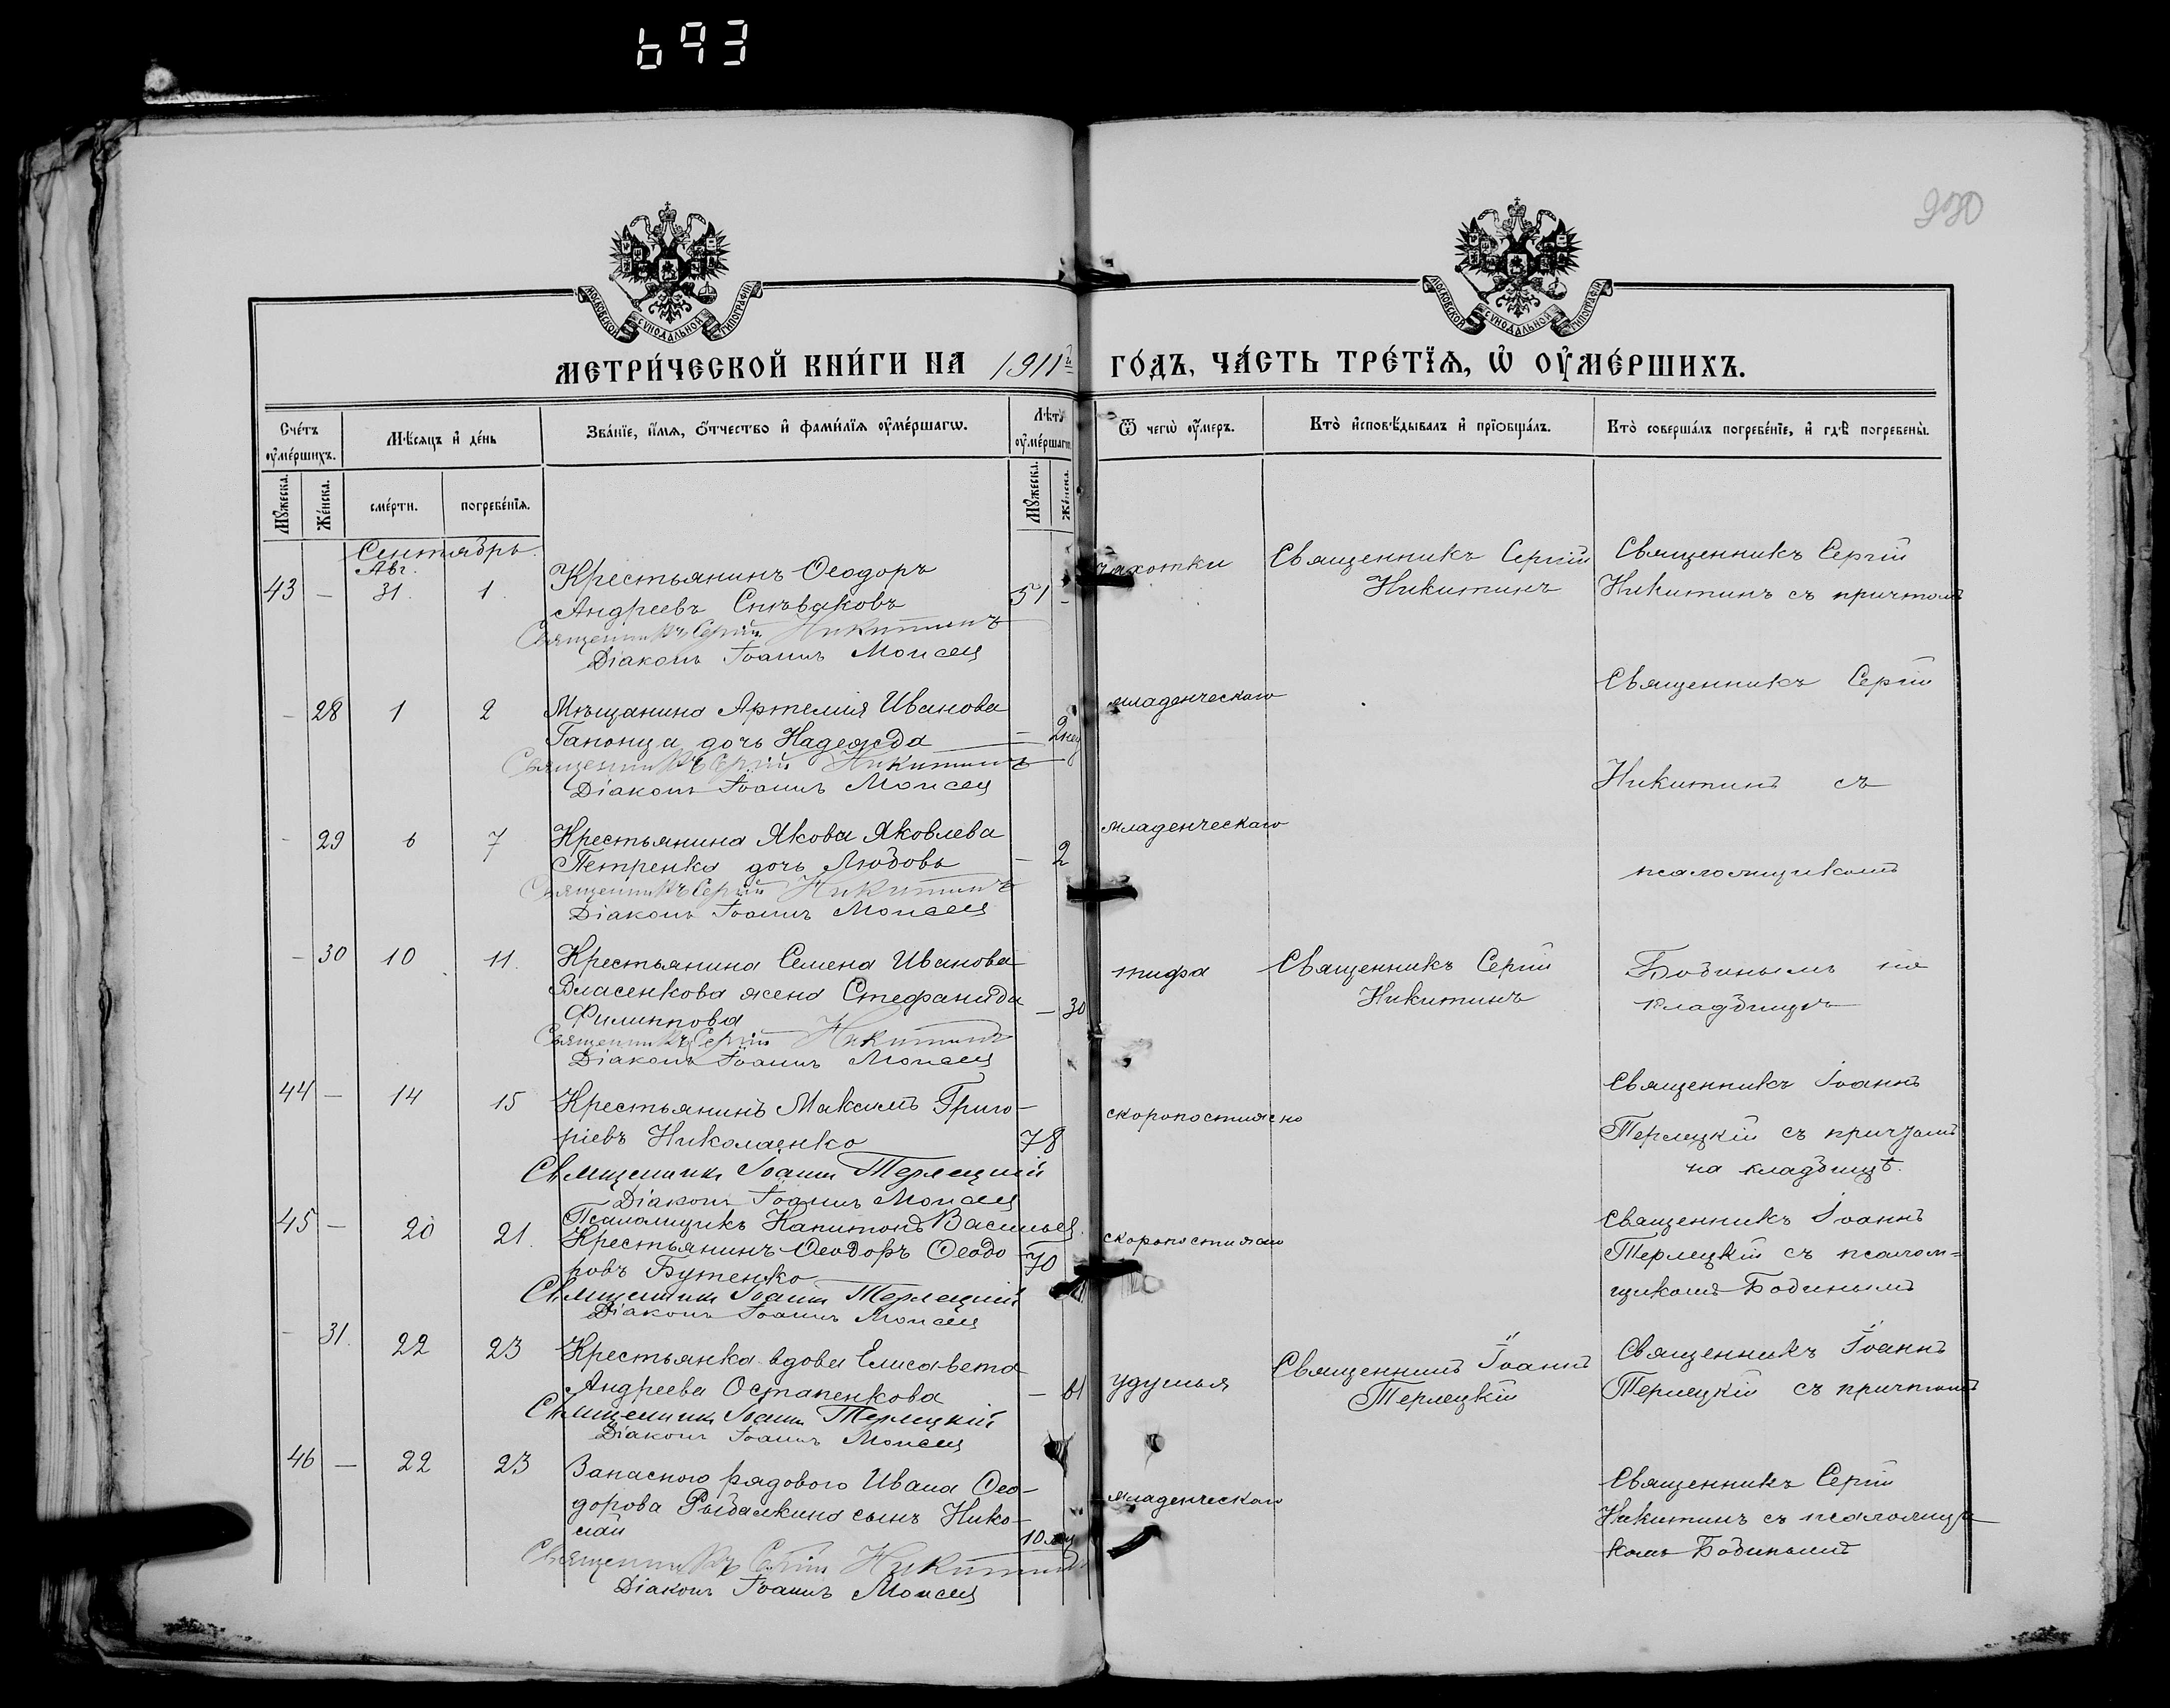 693
930
МОСКОВСКОЙ СѴНОДАЛЬНОЙ ТИПОГРАФІИ
МОСКОВСКОЙ СѴНОДАЛЬНОЙ ТИПОГРАФІИ
МЕТРИ́ЧЕСКОЙ КНИ́ГИ НА 1911й ГО́ДЪ, ЧА́СТЬ ТРЕ́ТЇѦ, Ѡ҆ ОУ҆МЕ́РШИХЪ.
Сче́тъ оу҆ме́ршихъ.
Мѣ́сѧцъ и҆ де́нь
Зва́нїе, и҆́мѧ, ѻ҆́тчество и҆ фами́лїѧ оу҆ме́ршагѡ.
Лѣ́тъ оу҆ме́ршагѡ
Ѿ чегѡ̀ оу҆́меръ.
Кто̀ и҆сповѣ́дывалъ и҆ прїѡбща́лъ.
Кто̀ соверша́лъ погребе́нїе, и҆ гдѣ̀ погребены̀.
Мꙋ́жеска.
Же́нска.
сме́рти.
погребе́нїѧ.
Мꙋ́жеска.
Же́нска.
Сентябрь.
Авг.
43 – 31. 1. Крестьянинъ Ѳеодоръ
Андреевъ Спѣваковъ 51 –
Священникъ Сергій Никитинъ
Діаконъ Іоаннъ Моисец
чахотки
Священникъ Сергій
Никитинъ
Священникъ Сергій
Никитинъ съ причтомъ
– 28 1 2 Мѣщанина Артемия Иванова
Гапонца дочь Надежда – 2 нед
Священникъ Сергій Никитинъ
Діаконъ Іоаннъ Моисец
младенческаго
Священникъ Сергій
Никитинъ съ
– 29 6 7 Крестьянина Якова Яковлева
Петренка дочь Любовь – 2
Священникъ Сергій Никитинъ
Діаконъ Іоаннъ Моисец
младенческаго
псаломщикомъ
– 30 10 11. Крестьянина Семена Иванова
Власенкова жена Стефанида
Филиппова – 30
Священникъ Сергій Никитинъ
Діаконъ Іоаннъ Моисец
тифа
Священникъ Сергій
Никитинъ
Бодинымъ на
кладбищѣ
44 – 14 15 Крестьянинъ Максимъ Григо-
ріевъ Николаенко 78
Священникъ Іоаннъ Терлецкій
Діаконъ Іоаннъ Моисец
Псаломщикъ Капитонъ Васильев
скоропостижно
Священникъ Іоаннъ
Терлецкій съ причтомъ
на кладбищѣ.
45 – 20 21. Крестьянинъ Ѳеодоръ Ѳеодо-
ровъ Бутенко 70
Священникъ Іоаннъ Терлецкій
Діаконъ Іоаннъ Моисец
скоропостижно
Священникъ Іоаннъ
Терлецкій съ псалом=
щикомъ Бодинымъ
– 31. 22 23 Крестьянка вдова Елисавета
Андреева Остапенкова – 61
Священникъ Іоаннъ Терлецкій
Діаконъ Іоаннъ Моисец
удушья
Священникъ Іоаннъ
Терлецкій
Священникъ Іоаннъ
Терлецкій съ причтомъ
46 – 22 23 Запасного рядового Ивана Ѳео-
дорова Рыбалкина сынъ Нико-
лай 10 м
Священникъ Сергій Никитинъ
Діаконъ Іоаннъ Моисец
младенческаго
Священникъ Сергій
Никитинъ съ псаломщи
комъ Бодинымъ